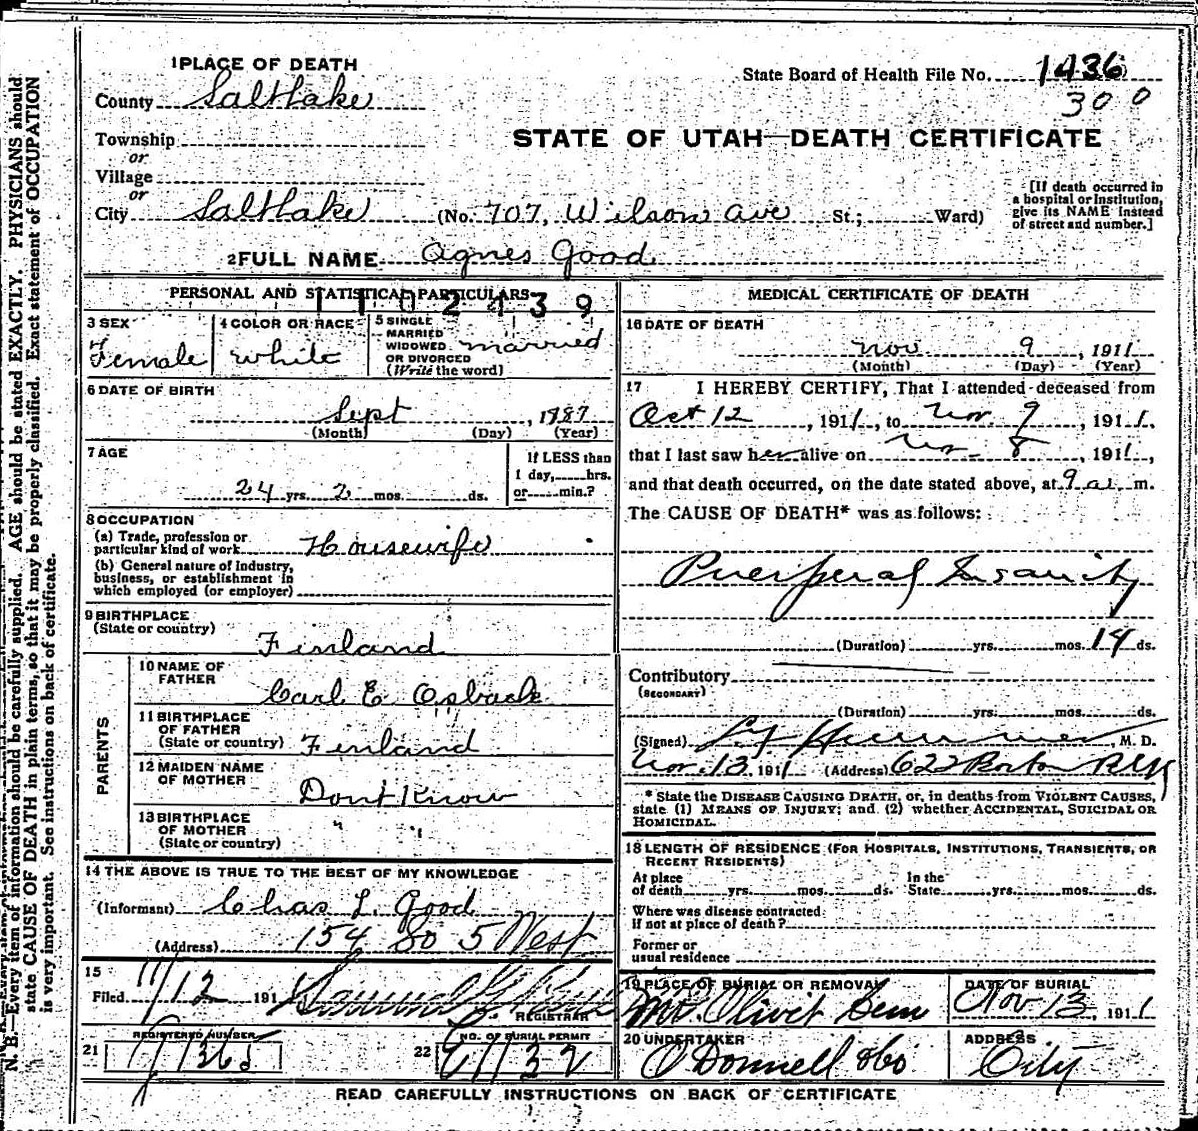 1 PLACE OF DEATH
County Saltlake
Township
or
Village
or
City Saltlake (No. 707, Wilson ave St.; Ward)
State Board of Health File No. 1436
300
STATE OF UTAH—DEATH CERTIFICATE
[If death occurred in
a hospital or institution,
give its NAME instead
of street and number.]
2 FULL NAME Agnes Good
PERSONAL AND STATISTICAL PARTICULARS
1102439
3 SEX
Female
4 COLOR OR RACE
white
5 SINGLE
MARRIED
WIDOWED
OR DIVORCED
(Write the word)
married
6 DATE OF BIRTH
Sept , 1887
(Month) (Day) (Year)
7 AGE
24 yrs. 2 mos. ds.
If LESS than
1 day, hrs.
or min.?
8 OCCUPATION
(a) Trade, profession or
particular kind of work Housewife
(b) General nature of industry,
business, or establishment in
which employed (or employer)
9 BIRTHPLACE
(State or country)
Finland
PARENTS
10 NAME OF
FATHER
Carl E Osback
11 BIRTHPLACE
OF FATHER
(State or country) Finland
12 MAIDEN NAME
OF MOTHER
Dont Know
13 BIRTHPLACE
OF MOTHER
(State or country)
" "
14 THE ABOVE IS TRUE TO THE BEST OF MY KNOWLEDGE
(Informant) Chas L. Good
(Address) 154 So 5 West
15
Filed 11/12 191
REGISTRAR
REGISTERED NUMBER
21
NO. OF BURIAL PERMIT
22
MEDICAL CERTIFICATE OF DEATH
16 DATE OF DEATH
Nov 9 , 1911
(Month) (Day) (Year)
17 I HEREBY CERTIFY, That I attended deceased from
Oct 12 , 1911, to Nov. 9 , 1911,
that I last saw her alive on Nov 8 , 1911,
and that death occurred, on the date stated above, at 9 a. m.
The CAUSE OF DEATH* was as follows:
Puerperal Insanity
(Duration) yrs. mos. 14 ds.
Contributory
(SECONDARY)
(Duration) yrs. mos. ds.
(Signed) , M. D.
Nov. 13, 1911 (Address) 622 Boston Blk
* State the DISEASE CAUSING DEATH, or, in deaths from VIOLENT CAUSES,
state (1) MEANS OF INJURY; and (2) whether ACCIDENTAL, SUICIDAL OR
HOMICIDAL.
18 LENGTH OF RESIDENCE (FOR HOSPITALS, INSTITUTIONS, TRANSIENTS, OR
RECENT RESIDENTS)
At place
of death yrs. mos. ds.
In the
State yrs. mos. ds.
Where was disease contracted
if not at place of death?
Former or
usual residence
19 PLACE OF BURIAL OR REMOVAL
Mt. Olivit Cem
DATE OF BURIAL
Nov 13, 1911
20 UNDERTAKER
O'Donnell &Co
ADDRESS
City
READ CAREFULLY INSTRUCTIONS ON BACK OF CERTIFICATE
N. B.—Every item of information should be carefully supplied. AGE should be stated EXACTLY. PHYSICIANS should
state CAUSE OF DEATH in plain terms, so that it may be properly classified. Exact statement of OCCUPATION
is very important. See instructions on back of certificate.